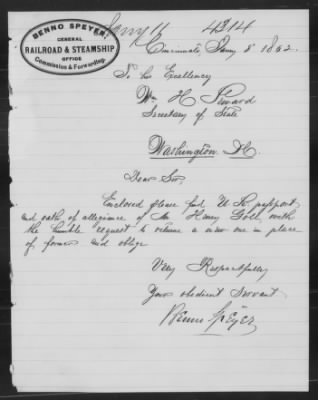 BENNO SPEYER,
GENERAL
RAILROAD & STEAMSHIP
OFFICE
Commission & Forwarding.
Jany 11 4314
Cincinnati, Jany 8 1862.
To his Excellency
Wm H Seward
Secretary of State
Washington DC.
Dear Sir,
Enclosed please find U.S. passport
and oath of allegiance of Mr Henry with
the humble request to return a new one in place
of former and oblige
Very Respectfully
Your obedient Servant
Benno Speyer